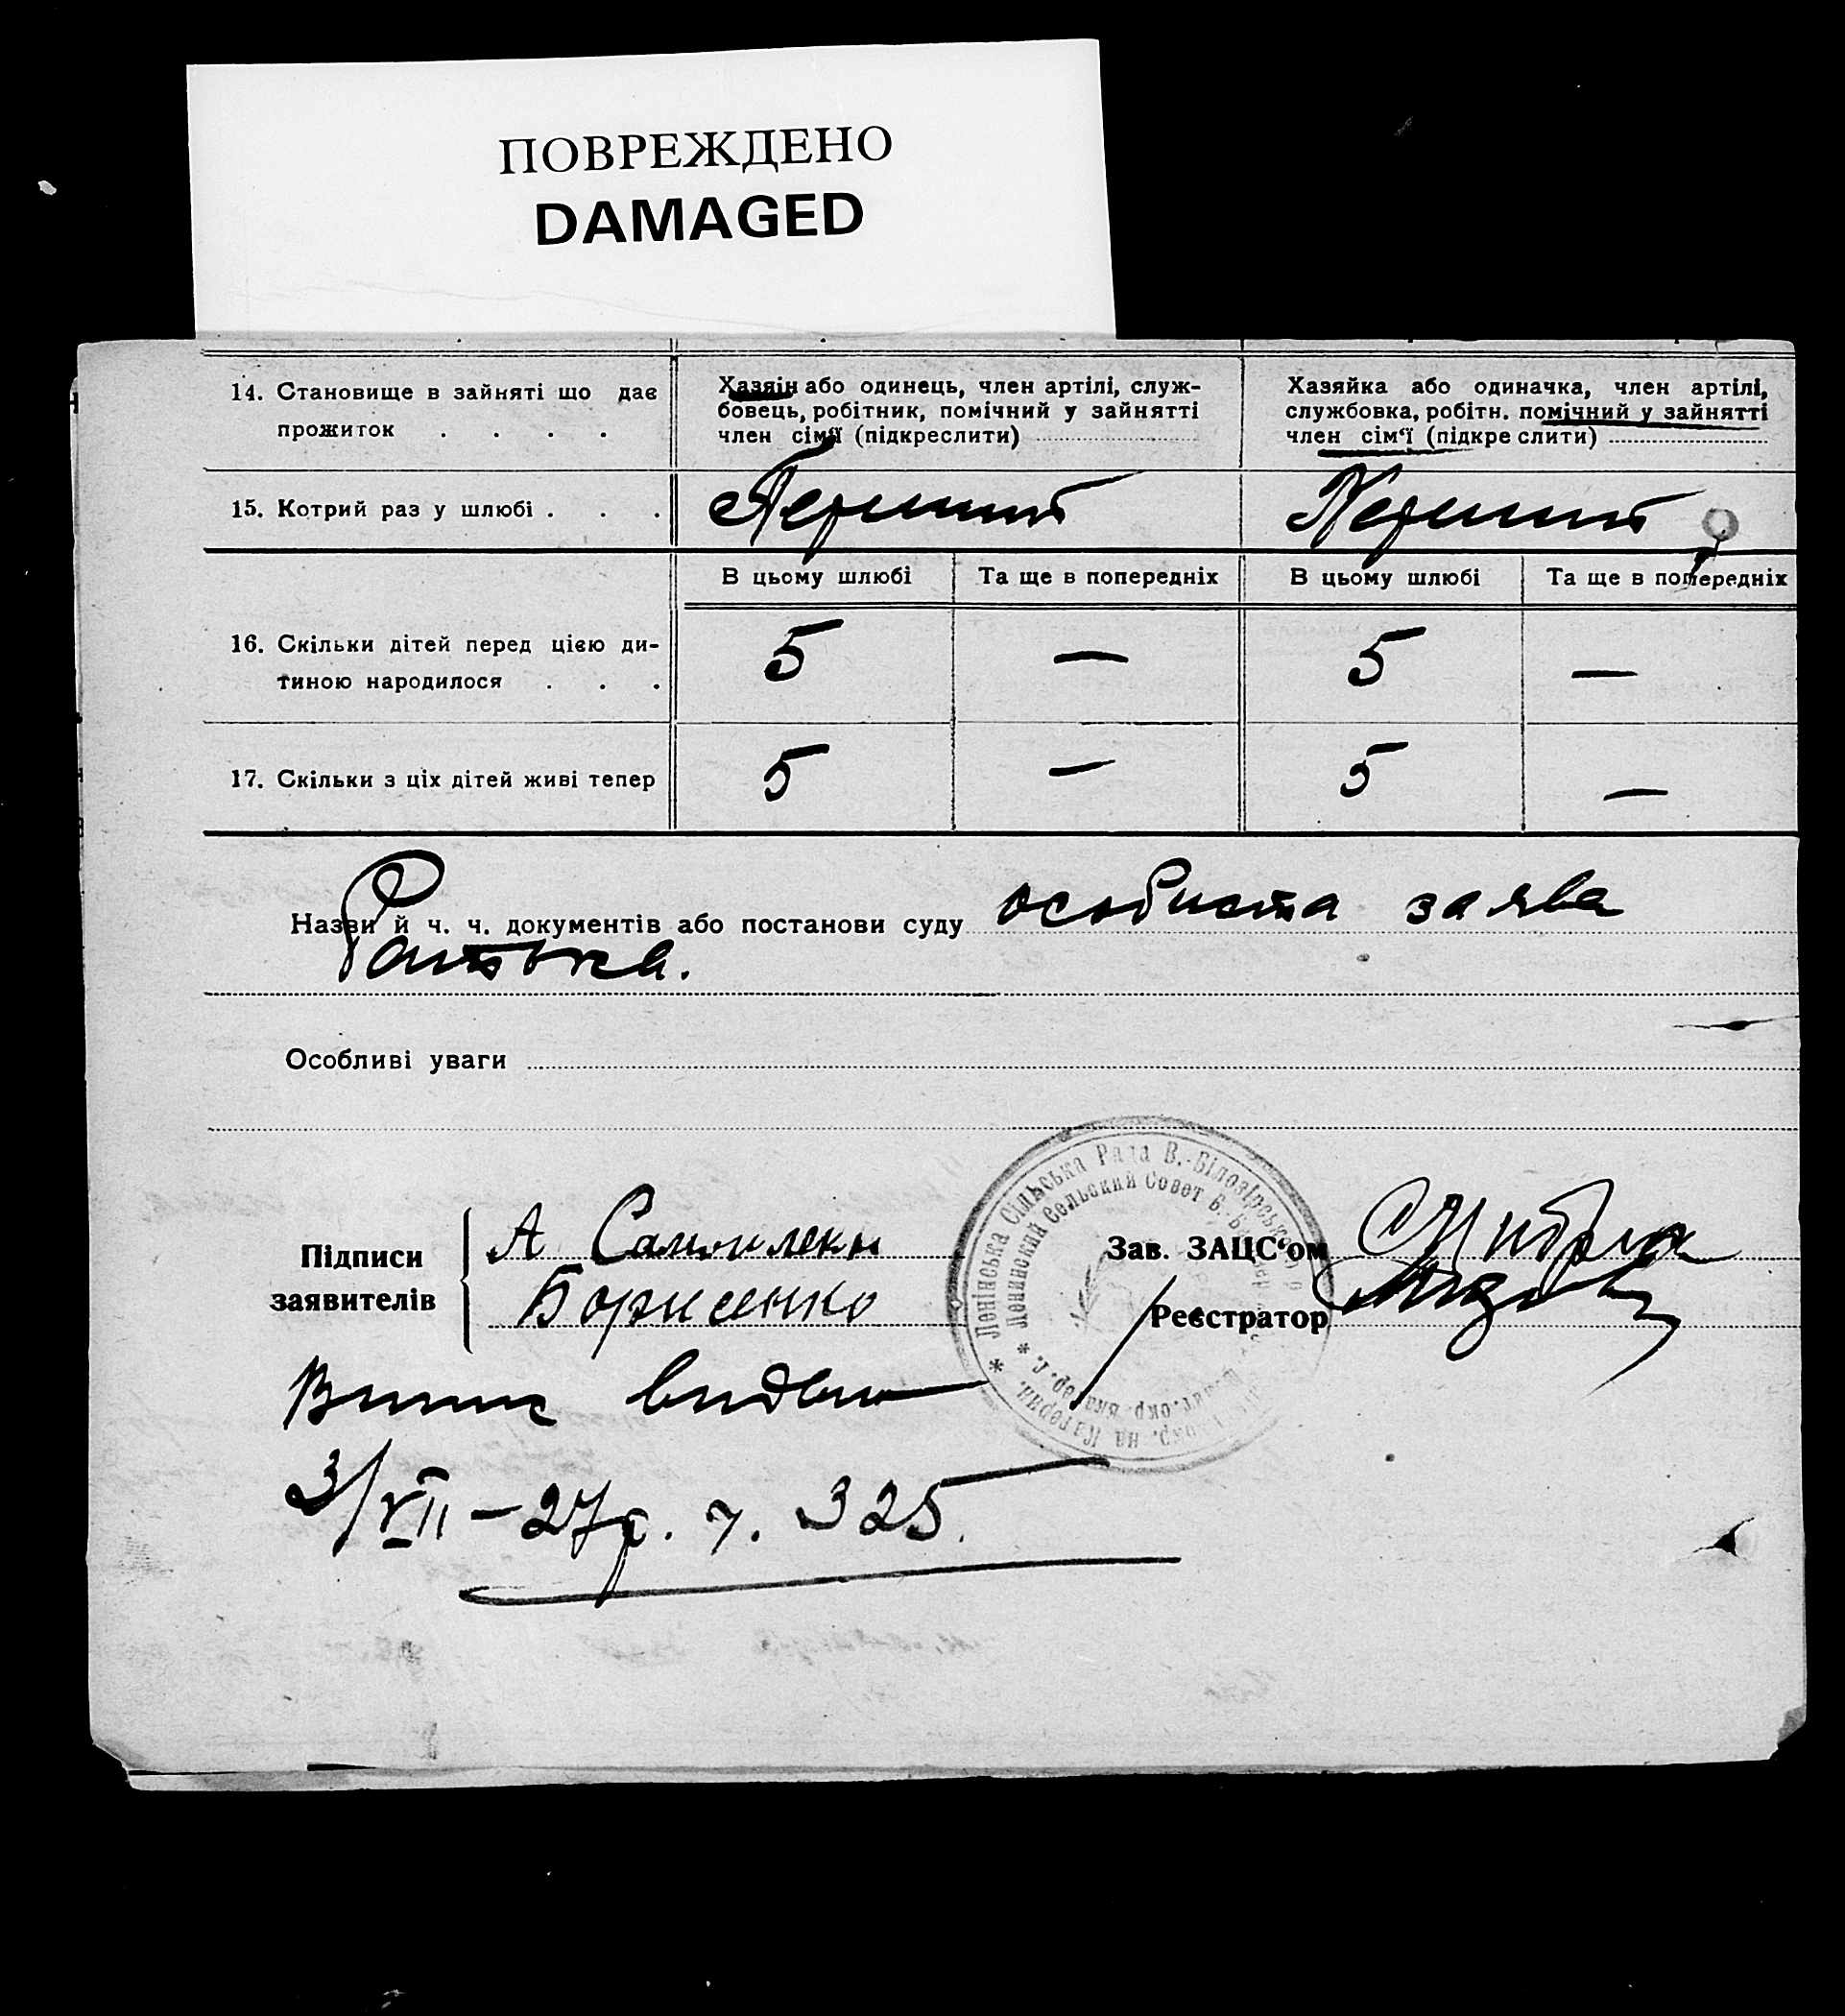 ПОВРЕЖДЕНО
DAMAGED
14. Становище в зайняті що дає
прожиток . . . .
Хазяін або одинець, член артілі, служ-
бовець, робітник, помічний у зайнятті
член сім'ї (підкреслити)
Хазяйка або одиначка, член артілі,
службовка, робітн. помічний у зайнятті
член сім'ї (підкре слити)
15. Котрий раз у шлюбі . . .
Перший
Перший
В цьому шлюбі
Та ще в попередніх
В цьому шлюбі
Та ще в попередніх
16. Скільки дітей перед цією ди-
тиною народилося . . .
5 — 5 —
17. Скільки з ціх дітей живі тепер
5 — 5 —
Назви й ч. ч. документів або постанови суду особиста заява
Підписи
заявителів
Особливі уваги
А Самойленко
Борисенко
Ленінська Сільська Рада В.-Білозірського
Ленинский Сельский Совет Б.-
Зав. ЗАЦС'ом
Реєстратор
Випис видан
3/VII – 27 р. ч. 325.